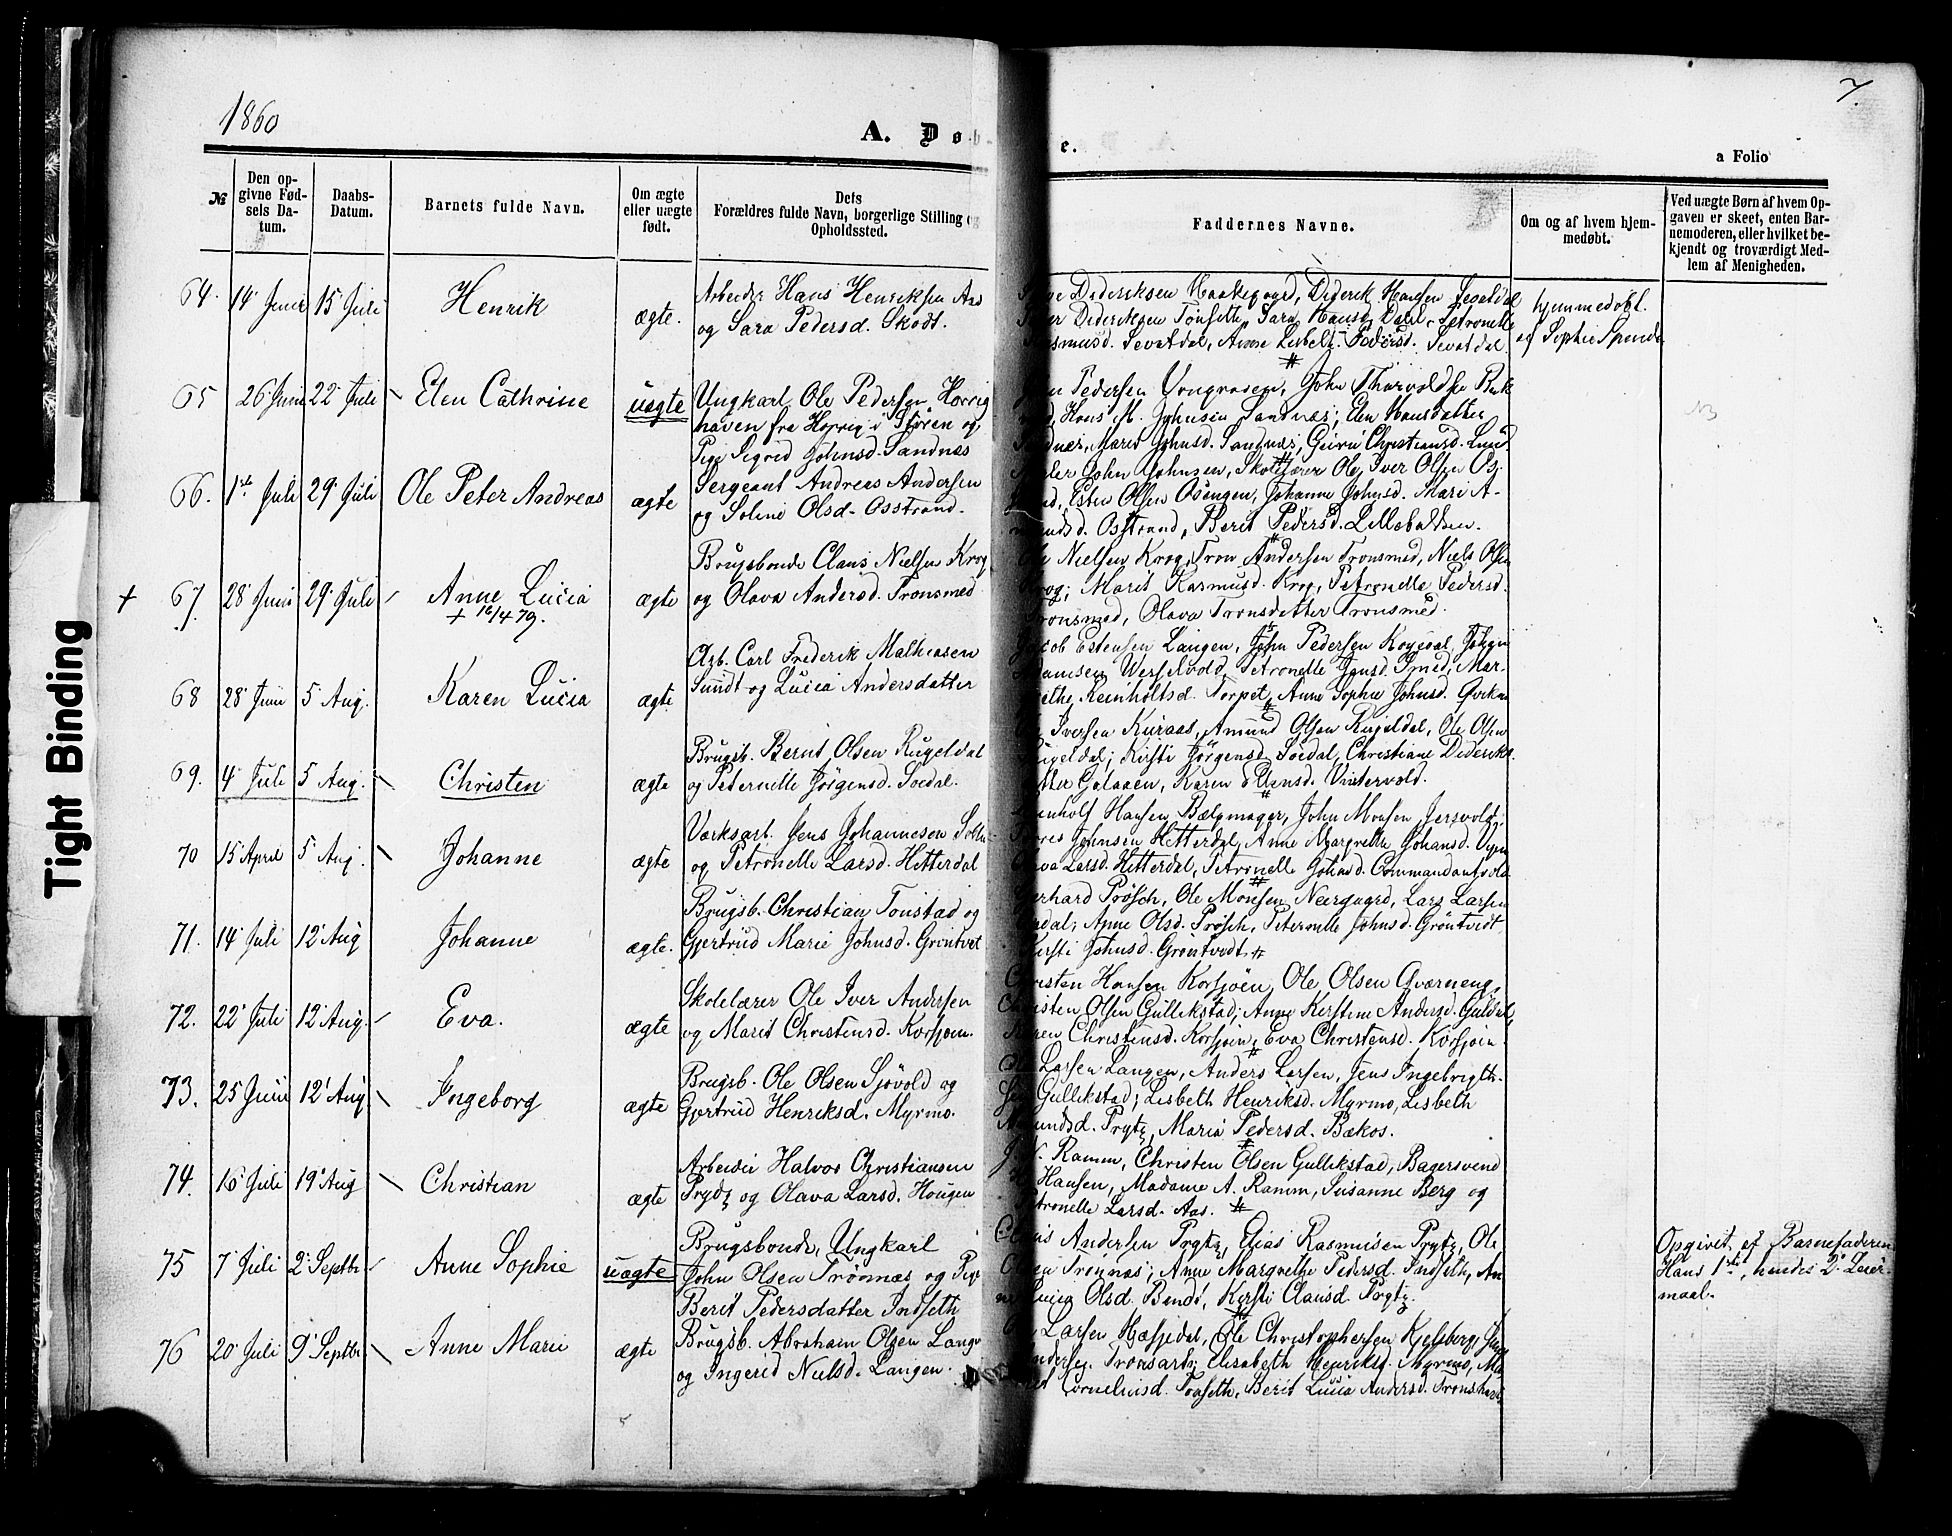 1860
7.
A. Døb
e.
a Folio
Tight Binding
№
Den opgivne Fødsels Datum.
Daabs-Datum.
Barnets fulde Navn.
Om ægte eller uægte født.
Dets Forældres fulde Navn, borgerlige Stilling og Opholdssted.
Faddernes Navne.
Om og af hvem hjemmedøbt.
Ved uægte Børn af hvem Opgaven er skeet, enten Barnemoderen, eller hvilket bekjendt og troværdigt Medlem af Menigheden.
64. 14' Juni 15' Juli Henrik ægte.
Arbeider Hans Henriksen Aas
og Sara Pedersd. Skott.
Dideriksen Haakegaard, Diderik Hansen Sevatdal
Dideriksen Tonseth, Sara Hansd. Dahl, Petronelle
Rasmusd. Sevatdal, Anne Lisbeth Pedersd. Sevatdal
hjemmedøbt
af Sophie
65 26' Juni 22' Juli Elen Cathrine uægte
Ungkarl Ole Pedersen Horrig
haven fra Horrig i Støren og
Pige Sigrid Johnsd. Sandnæs
Pedersen Vongraven, John Thorvoldsen
Hans H. Johnsen Sandnæs; Elen Hansdatter
Marit Johnsd. Sandnæs; Guru Christiansd. Lund
66. 1ste Juli 29' Juli Ole Peter Andreas ægte
Sergeant Andreas Andersen
og Soline Olsd. Osstrand.
John Johnsen, Skolelærer Ole Iver Olsen
Esten Olsen Osengen, Johanne Johnsd. Mari A-
Osstrand, Berit Pedersd. Lillebakken.
+ 67. 28' Juni 29' Juli Anne Lucia ægte
+ 16/4 79.
Brugsbonde Claus Nielsen Krog
og Olava Andersd. Tronsmed
Nielsen Krog, Tron Andersen Tronsmed, Niels Olsen
Krog; Marit Rasmusd. Krog, Petronelle Pedersd.
Tronsmed, Olava Tronsdatter Tronsmed.
68 28' Juni 5' Aug. Karen Lucia ægte
Carl Frederik Mathiasen
Sundt og Lucia Andersdatter
Jacob Estensen Langen, John Pedersen
Petronelle Jensd. Mar-
Reinholtsd. Torpet, Anne Sophie Johnsd.
69. 4' Juli 5' Aug. Christen ægte
Brugsb. Bernt Olsen Rugeldal
og Peternille Jørgensd. Soedal.
Iversen Kuraas, Amund Olsen Rugeldal, Ole Olsen
Rugeldal; Kirsti Jørgensd. Soedal, Christiane Dideriks-
Galaaen, Karen Hansd. Vintervold.
70 15' April 5' Aug. Johanne ægte
Værksarb. Jens Johannesen
og Petronelle Larsd. Hitterdal
Hansen Bælgmager, John Monsen Jersvold;
Johnsen Hitterdal, Anne Margrethe Johansd.
Larsd. Hitterdal, Petronelle Johnsd. Commandantvold
71. 14' Juli 12' Aug Johanne ægte.
Brugsb. Christian Tonstad og
Gjertrud Marie Johnsd. Grontvet
Prösch, Ole Monsen Neergaard, Lars Larsen
Anne Olsd. Prösch, Peternille Johnsd. Gröntvedt
Kirsti Johnsd. Gröntvedt.
72. 22' Juli 12' Aug. Eva. ægte
Skolelærer Ole Iver Andersen
og Marit Christensd. Korsjoen.
Christen Hansen Korsjöen, Ole Olsen Qværneng,
Christen Olsen Gullikstad; Anne Kirstine Andersd. Guldal,
Karen Christensd. Korsjoen, Eva Christensd. Korsjoen.
73. 25' Juni 12' Aug. Ingeborg ægte
Brugsb. Ole Olsen Sjövold og
Gjertrud Henriksd. Myrmo.
Larsen Langen, Anders Larsen, Jens Ingebrigth-
sen Gullikstad; Lisbeth Henriksd. Myrmo, Lisbeth
Amundsd. Prytz, Maria Pedersd. Bækos.
74. 16' Juli 19' Aug Christian ægte
Arbeider Halvor Christiansen
Prydz og Olava Larsd. Hougen
Ramm, Christen Olsen Gullikstad, Bagersvend
Hansen, Madame A. Ramm, Susanne Berg og
Petronelle Larsd. Aas.
75 7' Juli 2' Septbr Anne Sophie uægte
Brugsbonde, Ungkarl
John Olsen Trönnæs og Pige
Berit Pedersdatter Indseth
Andersen Prytz, Elias Rasmusen Prytz, Ole
Trönnæs; Anne Margrethe Pedersd. Indseth, An-
ne Lucia Olsd. Kirsti Clausd. Prytz.
Opgivet af Barnefaderen
Hans 1ste, hendes 2' Leier-
maal.
76 20' Juli 9' Septbr. Anne Marie ægte
Brugsb. Abraham Olsen Langen
og Ingerid Nielsd. Langen.
Larsen Hæssjedal, Ole Christophersen Kjelsberg,
Elisabeth Henriksd. Myrmo,
Cornelinsd. Tonseth, Berit Lucia Andersd.